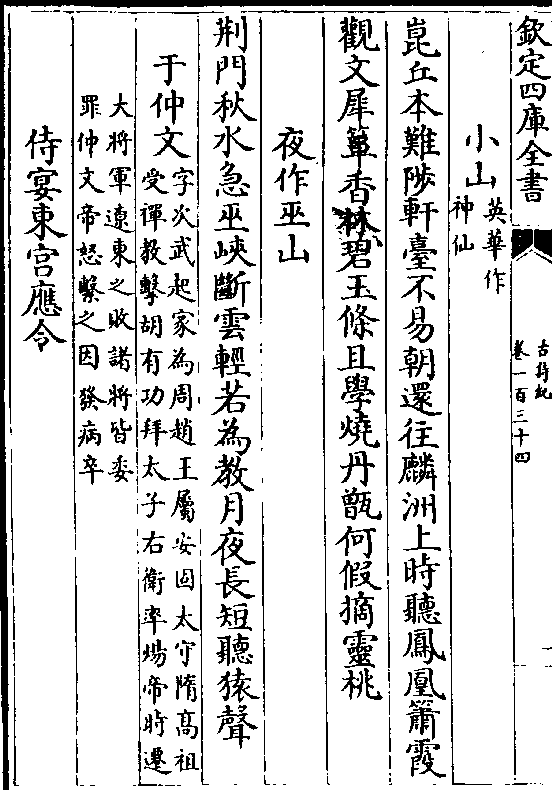 欽定四庫全書
古詩紀
卷一百三十四
小山英華作
神仙
崑丘本難陟軒臺不易朝還往麟洲上時聽鳳凰簫霞
觀文犀簟香林碧玉條且學燒丹甑何假摘靈桃
夜作巫山
荆門秋水急巫峽斷雲輕若為教月夜長短聽猿聲
于仲文字次武起家為周趙王屬安固太守隋髙祖
受禪教擊胡有功拜太子右衛率煬帝時遷
大將軍遼東之敗諸將皆委
罪仲文帝怒繫之因發病卒
侍宴東宫應令